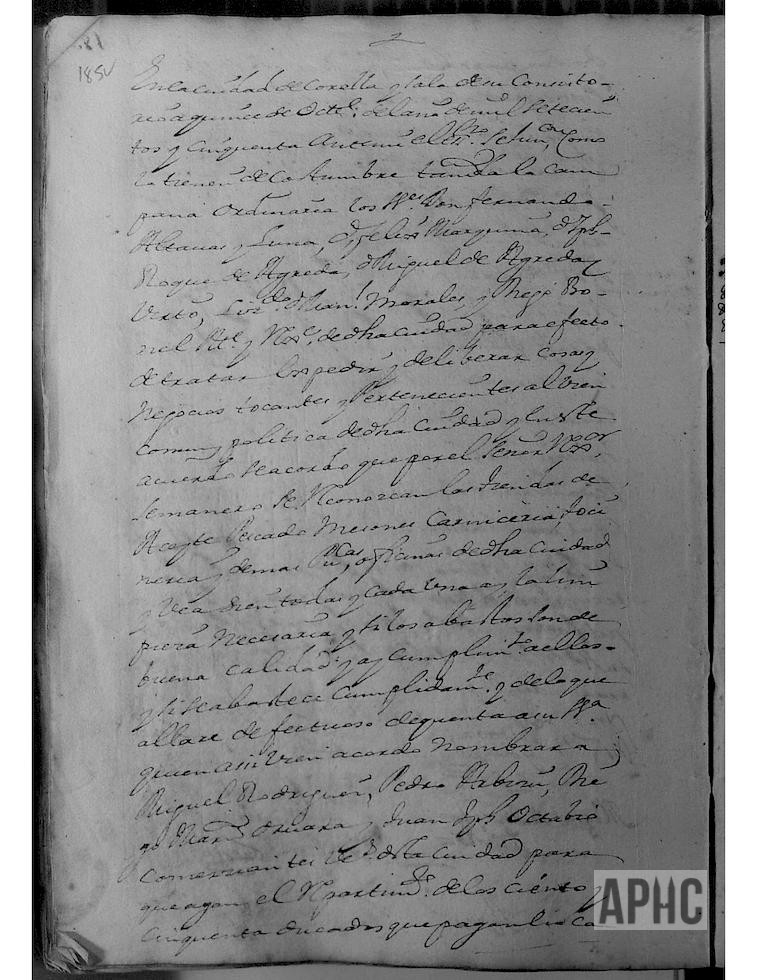 181
185v
En la ciudad de Corella y sala de su Consisto-
rio a quince de Octe. del año de mil Setecien
tos y Cinquenta Ante mi el Sno.
lo tienen de Costumbre tañida la Cam
pana Ordinaria los Sres. Don fernando
y Luna, Dn. felix Marquina, Dn. Jph.
Roque de Agreda, Dn. Miguel de Agreda y
Morales, y Diego Bo-
nel Rte. y de dha Ciudad para efecto
de tratar Conpedir y deliberar cosas y
Negocios tocantes y Pertenecientes al Vien
comun y politica de dha Ciudad y en este
acuerdo se acordo que por el Señor
Semanero se Reconozcan las tiendas de
Aceyte Pescado Mesones Carniceria, toci
neria y demas oficinas de dha Ciudad
y Vea si en todas y cada Una ay la lim
pieza Necesaria y si los abastos son de
buena Calidad y ay Cumplimto. de ellos
y si se abastece Cumplidamte. y de lo que
allare defectuoso de quenta a su Sa.
quien asi Vien acordo Nombrar a
Miguel Rodriguez, Pedro Die
go Martn. y Juan Jph Octabio
Comerciantes Vs. de esta Ciudad para
que agan el Repartimto. de los Ciento y
Cinquenta ducados que pagan
APHC